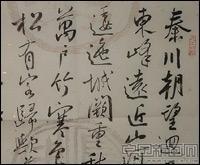 秦川朝望迥
東峰遠近山
逶迤城闕重秋
萬戶竹寒色
松有客歸歟